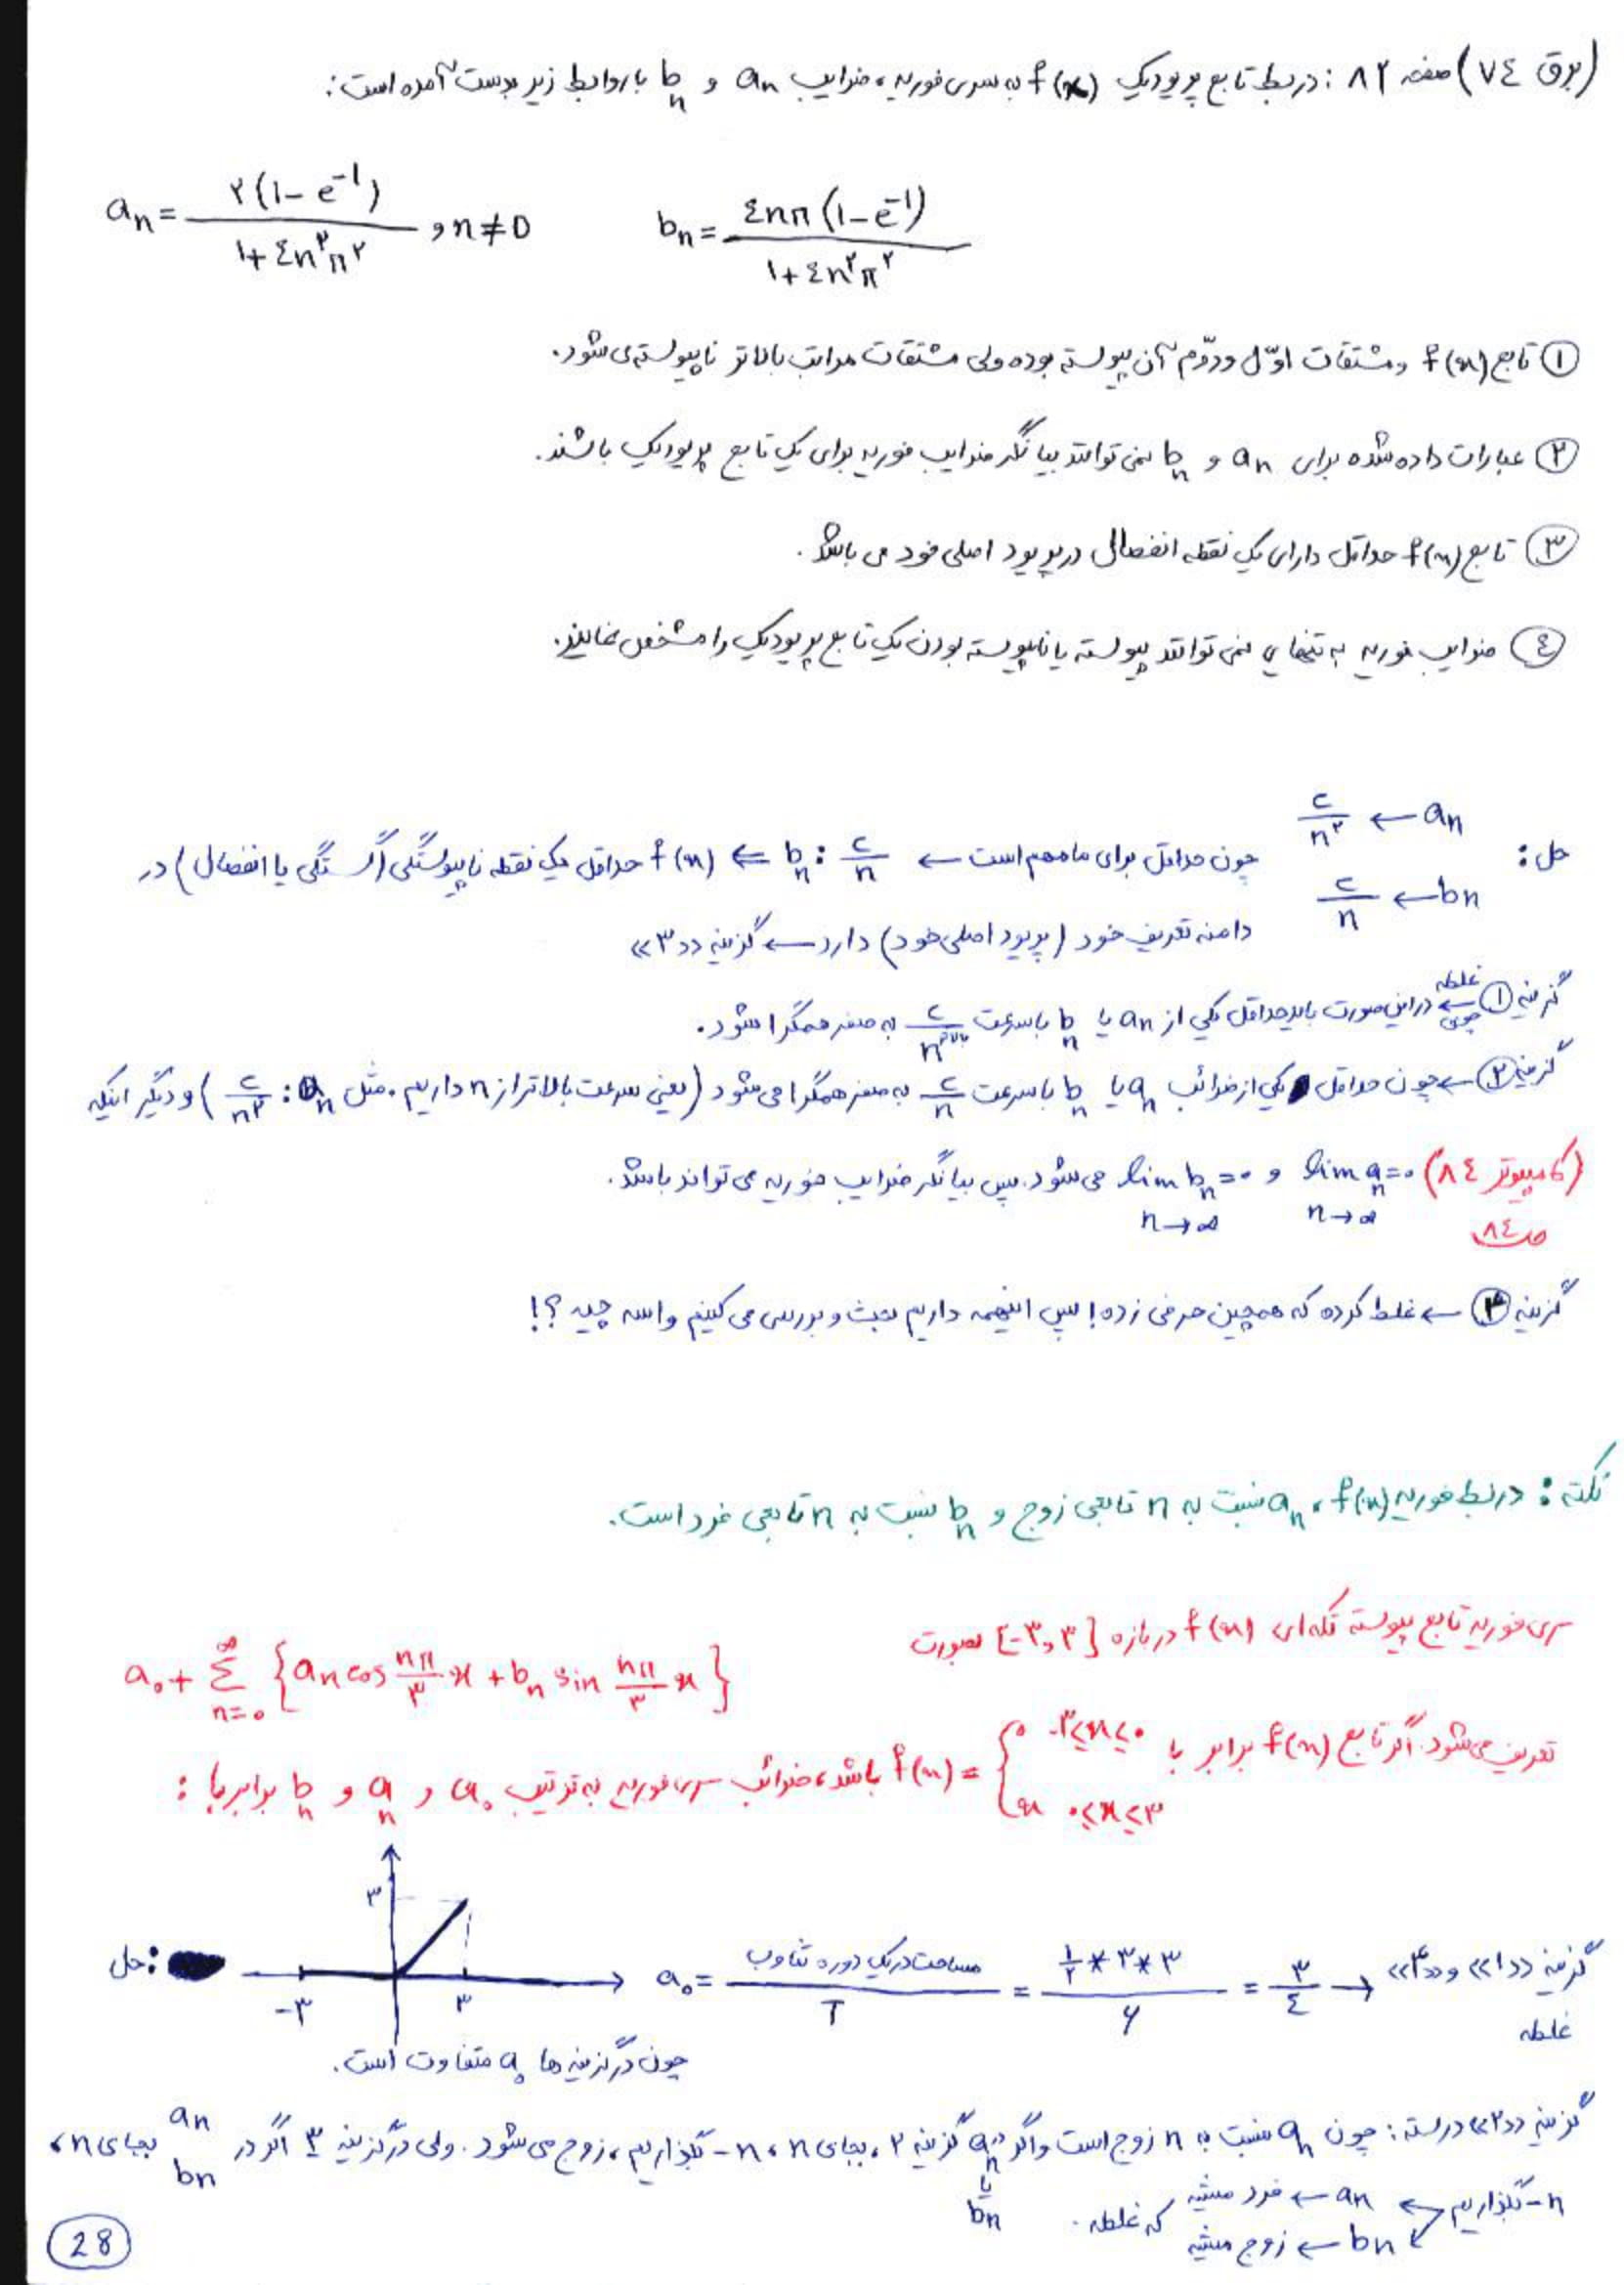 (برق ٧٤) صفحه ٨٢ : در بسط تابع پریودیک f(x) به سری فوریه، ضرایب an و bn با روابط زیر بدست آمده است:
an = ٢(١- e^-١) / ١+٤n^٢π^٢ , n≠0    bn = ٤nπ(١- e^-١) / ١+٤n^٢π^٢
① تابع f(x) و مشتقات اوّل و دوّم آن پیوسته بوده ولی مشتقات مراتب بالاتر ناپیوسته می شود.
② عبارات داده شده برای an و bn نمی توانند بیانگر ضرایب فوریه برای یک تابع پریودیک باشند.
③ تابع f(x) حداقل دارای یک نقطه انفصال در پریود اصلی خود می باشد.
④ ضرایب فوریه به تنهایی نمی توانند پیوسته یا ناپیوسته بودن یک تابع پریودیک را مشخص نمایند.
حل: an → c/n^٢
bn → c/n
چون حداقل برای ما مهم است ← bn : c/n ⇐ f(x) حداقل یک نقطه ناپیوستگی (گسستگی یا انفصال) در
دامنه تعریف خود (پریود اصلی خود) دارد ← گزینه «٣»
گزینه ① غلطه ← چون در این صورت باید حداقل یکی از an یا bn با سرعت به صفر همگرا شود.
گزینه ② ← چون حداقل یکی از ضرائب an یا bn با سرعت c/n به صفر همگرا می شود (یعنی سرعت بالاتر از n داریم. مثل an : c/n^٢) و دیگر اینکه
(کامپیوتر ٨٤) lim an=٠ n→∞ و lim bn=٠ n→∞ می شود. پس بیانگر ضرایب فوریه می تواند باشد.
ص ٨٤
گزینه ④ ← غلط کرده که همچین حرفی زده! پس اینهمه داریم بحث و بررسی می کنیم واسه چیه ؟!
نکته : در بسط فوریه f(x)، an نسبت به n تابعی زوج و bn نسبت به n تابعی فرد است.
سری فوریه تابع پیوسته تکه ای f(x) در بازه [-٣,٣] بصورت a₀ + ∞Σn=٠ {an cos nπ/٣ x + bn sin nπ/٣ x}
تعریف می شود. اگر تابع f(x) برابر با f(x) = { ٠ -٣<x<٠ , x ٠<x<٣ باشد، ضرائب سری فوریه به ترتیب a₀ و an و bn برابر با :
حل: ٣ -٣ ٣ a₀ = مساحت در یک دوره تناوب / T = ١/٢*٣*٣ / ٦ = ٣/٤ → گزینه «١» و «٤» غلطه
چون در گزینه ها a₀ متفاوت است.
گزینه «٢» درسته: چون an نسبت به n زوج است و اگر در an یا bn گزینه ٢، بجای n، -n بگذاریم، زوج می شود. ولی در گزینه ٣ اگر در an bn بجای n،
-n بگذاریم ← an ← فرد میشه
bn ← زوج میشه که غلطه.
28